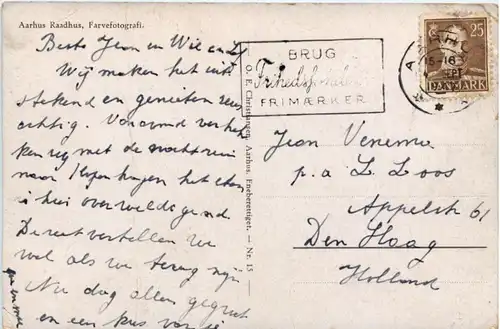 Aarhus Raadhus, Farvefotografi.
Beste Jean en Wil en
Wij maken het uit
stekend en genieten reus
achtig. Vanavond vertrek
ken wij met de nachttrein
naar Kopenhagen het eten
is hier overweldigend
De rest vertellen we
wel als we terug zijn
Nu dag allen gegroet
en een kus van
O. E. Christiansen, Aarhus. Eneberettiget. — Nr. 15
BRUG
Frihedsfondens
FRIMÆRKER
15-16
SEPT
25
DANMARK
Jean Venema
p.a L. Loos
Appelstr 61
Den Haag
Holland